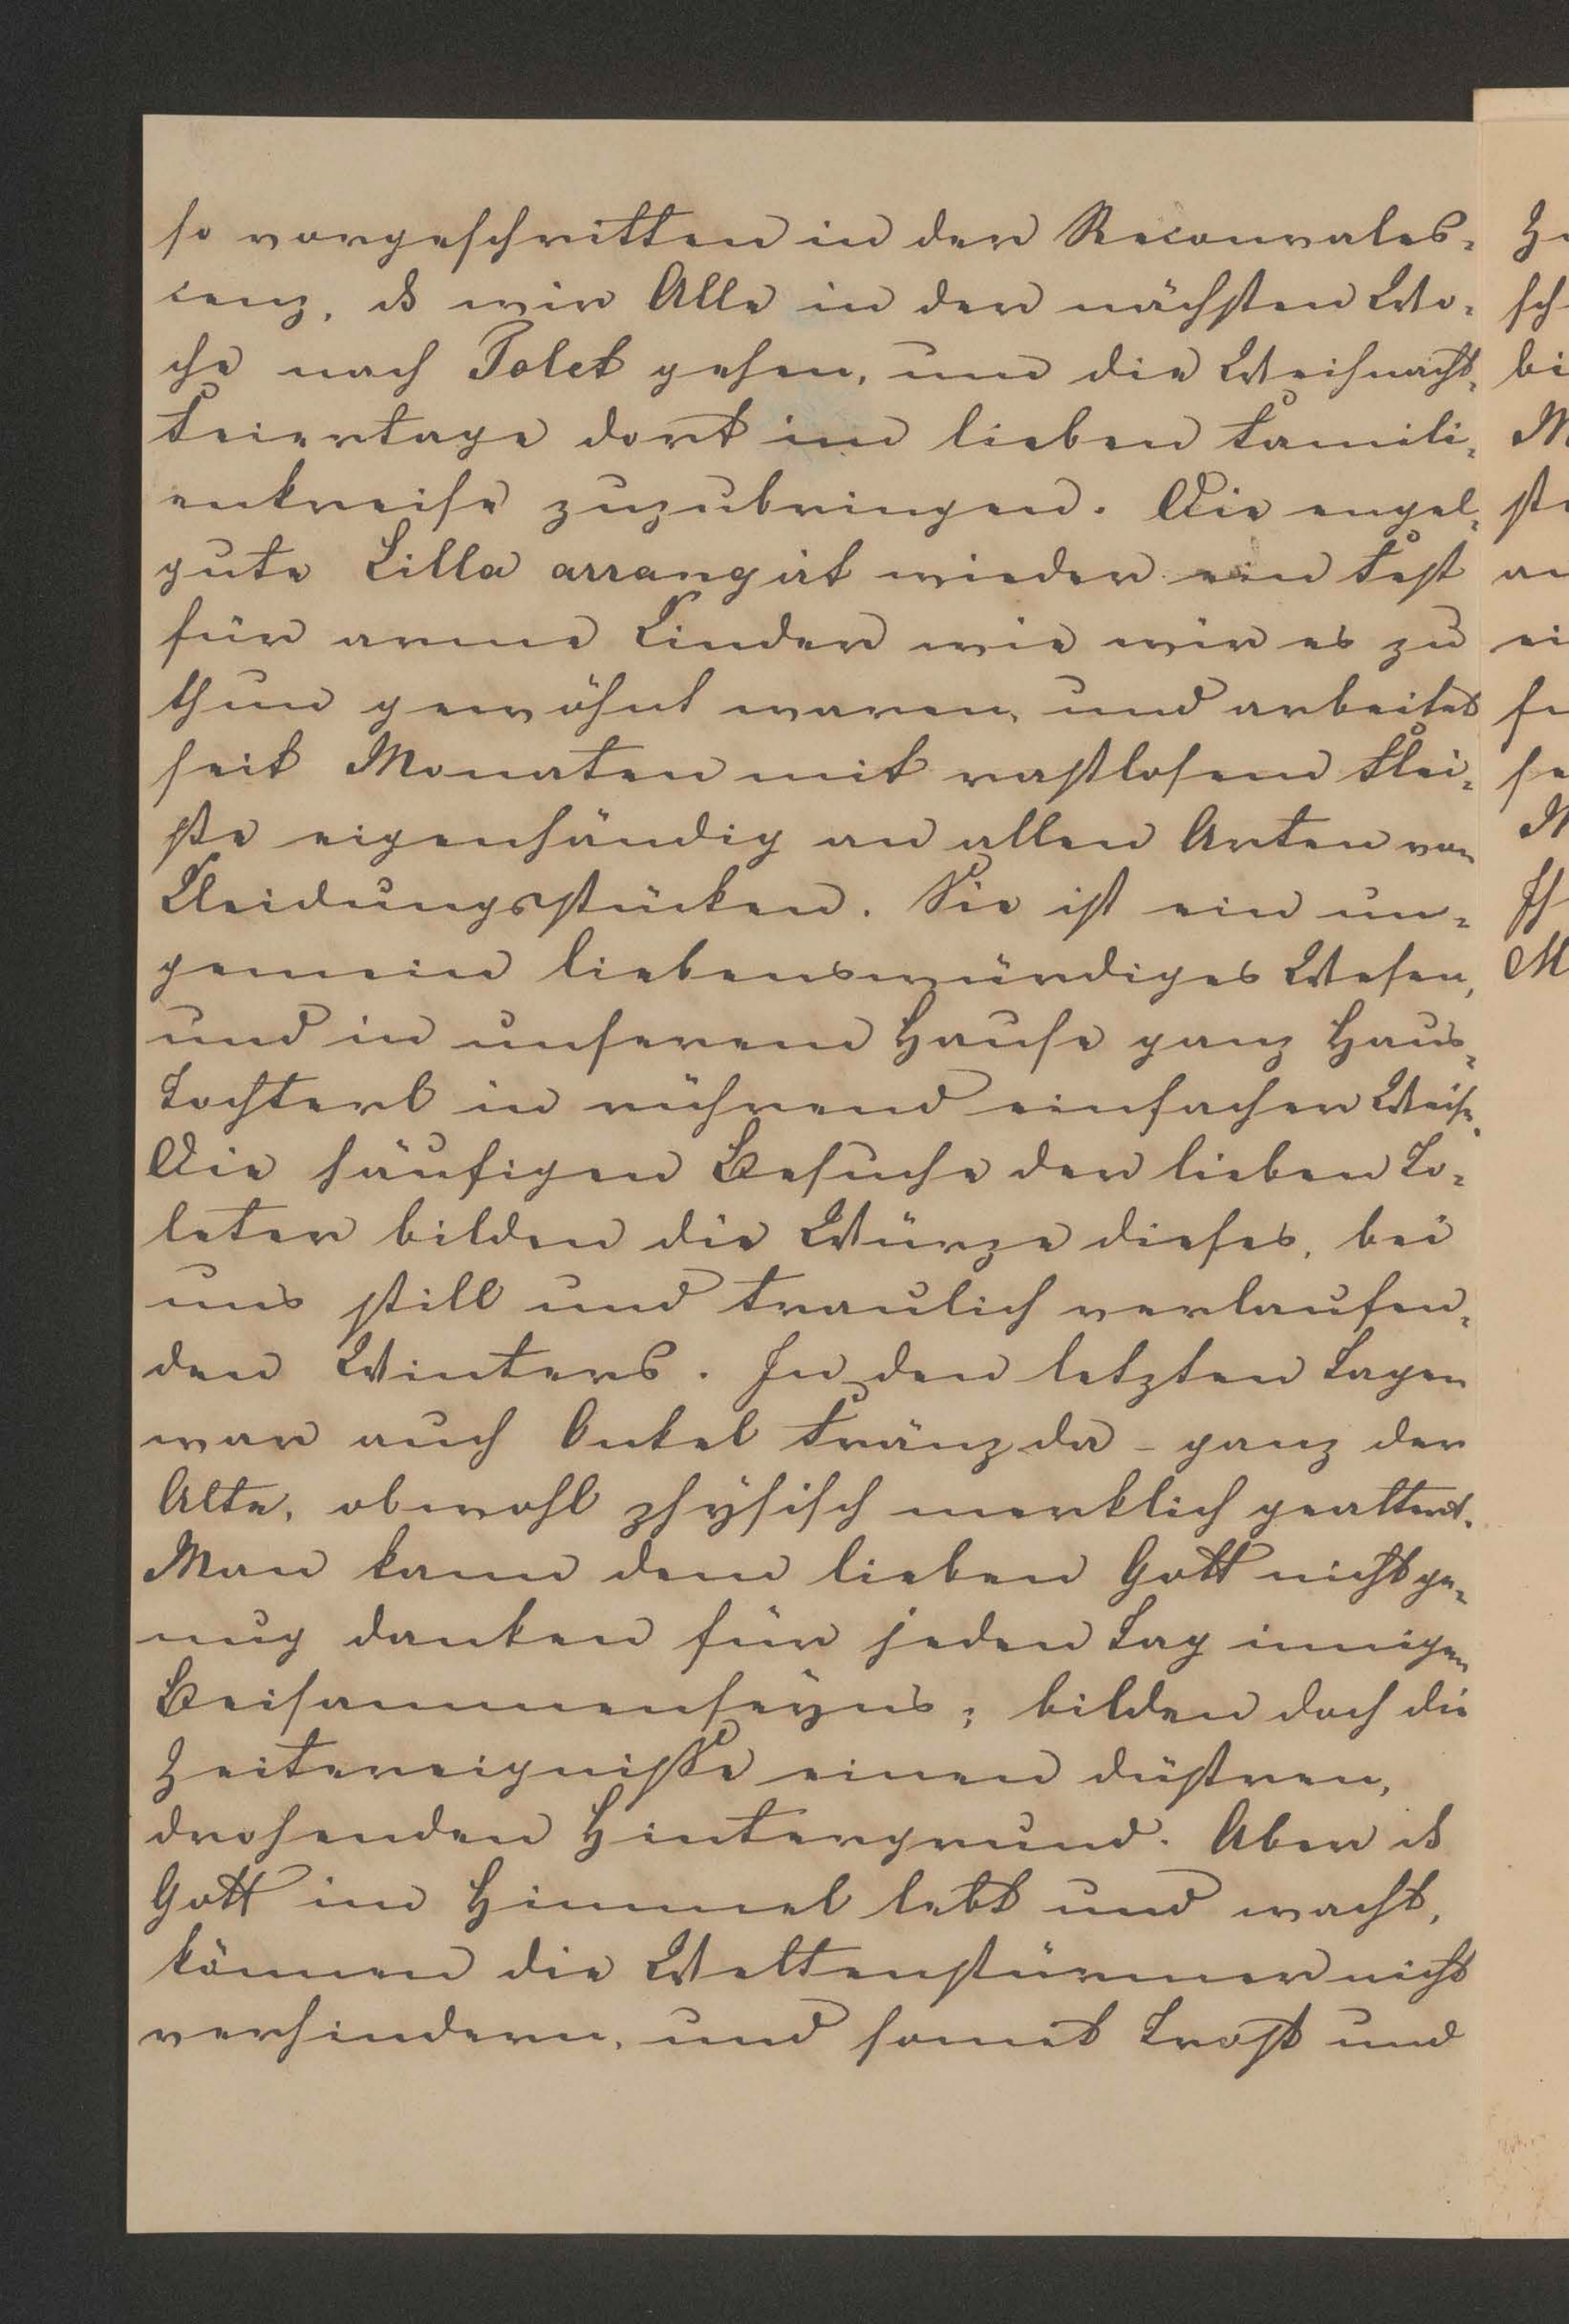 so vorgeschritten in der Reconvales-
cenz, dß wir Alle in der nächsten Wo-
che nach Tolet gehen, um die Weihnacht-
Feiertage dort im lieben Famili-
enkreise zuzubringen. Die engel-
gute Lilla arrangirt wieder ein Fest
für arme Kinder wie wir es zu
thun gewöhnt waren, und arbeitet
seit Monaten mit rastlosem Flei-
ße eigenhändig an allen Arten von
Kleidungsstücken. Sie ist ein un-
gemein liebenswürdiges Wesen,
und in unserem Hause ganz Haus-
tochterl in rührend einfacher Weise.
Die häufigen Besuche der lieben To-
leter bilden die Würze dieses, bei
uns still und traulich verlaufen-
den Winters. In den letzten Tagen
war auch Onkel Fränz da - ganz der
Alte, obwohl physisch merklich gealtert.
Man kann dem lieben Gott nicht ge-
nug danken für jeden Tag innigen
Beisammenseyns; bilden doch die
Zeitereigniße einen düstren,
drohenden Hintergrund. Aber dß
Gott im Himmel lebt und wacht,
können die Weltenstürmer nicht
verhindern, und somit Trost und